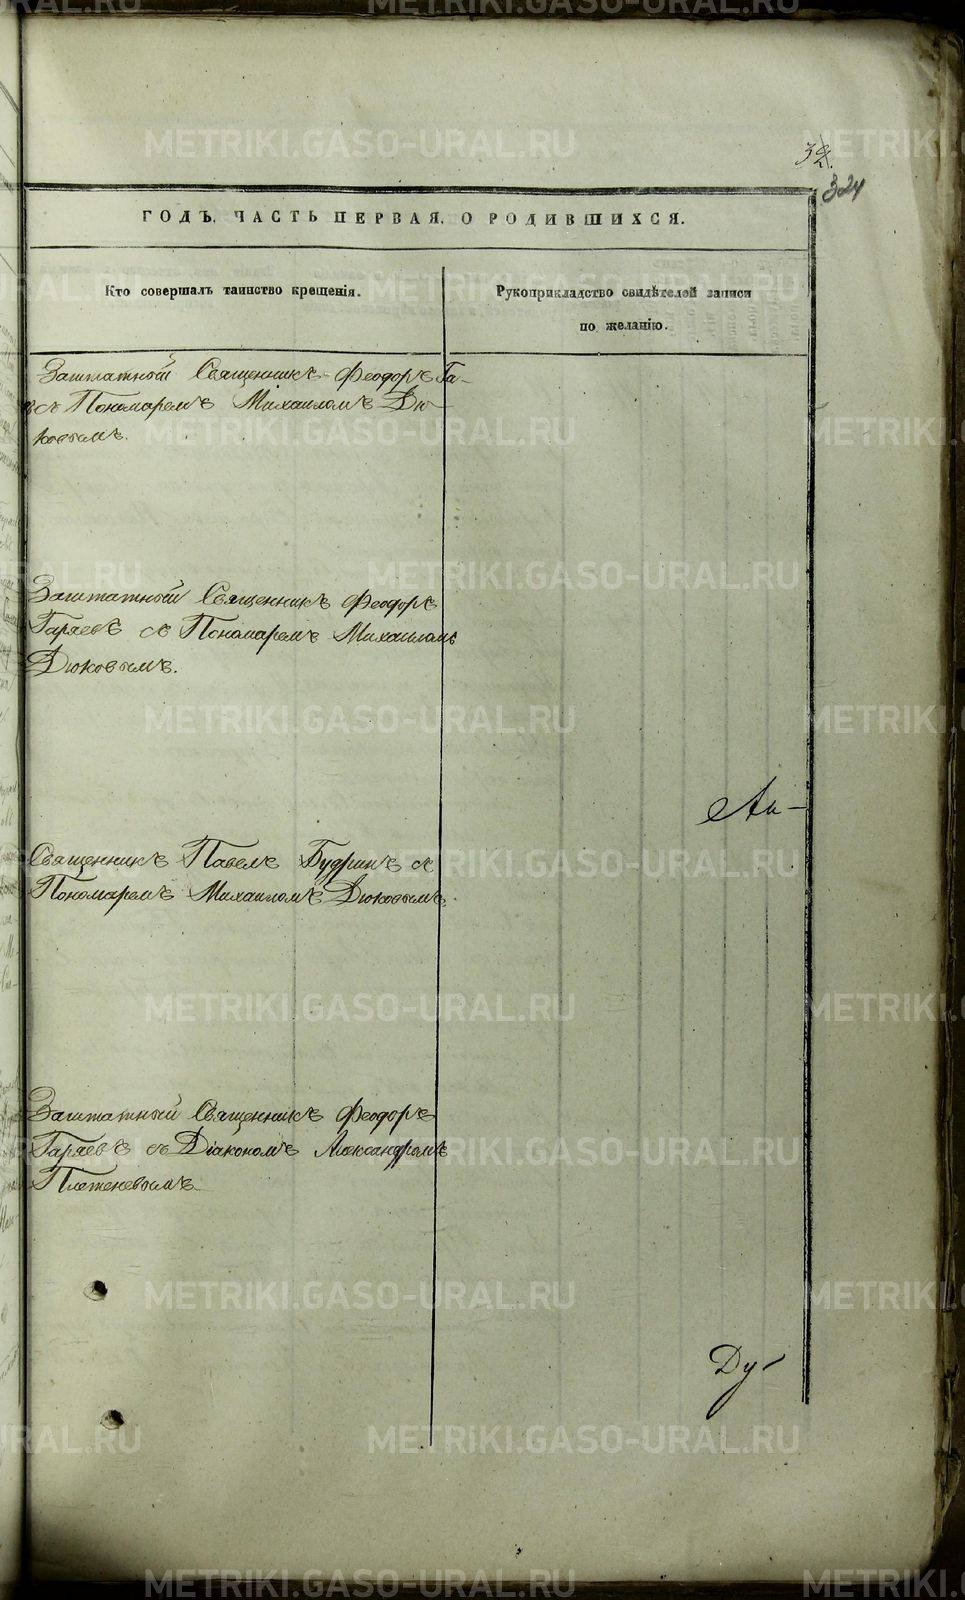 32.
324
ГОДЪ. ЧАСТЬ ПЕРВАЯ. О РОДИВШИХСЯ.
Кто совершалъ таинство крещенія.
Рукоприкладство свидѣтелей записи
по желанію.
Заштатный Священникъ Феодоръ Га-
съ Пономаремъ Михаиломъ Дю-
ковымъ.
Заштатный Священникъ Феодоръ
Гаряевъ съ Пономаремъ Михаиломъ
Дюковымъ.
Ан-
Священникъ Павелъ Будринъ съ
Пономаремъ Михаиломъ Дюковымъ.
Заштатный Священникъ Феодоръ
Гаряевъ съ Діакономъ Александромъ
Плетеневымъ
Ду-
METRIKI.GASO-URAL.RU